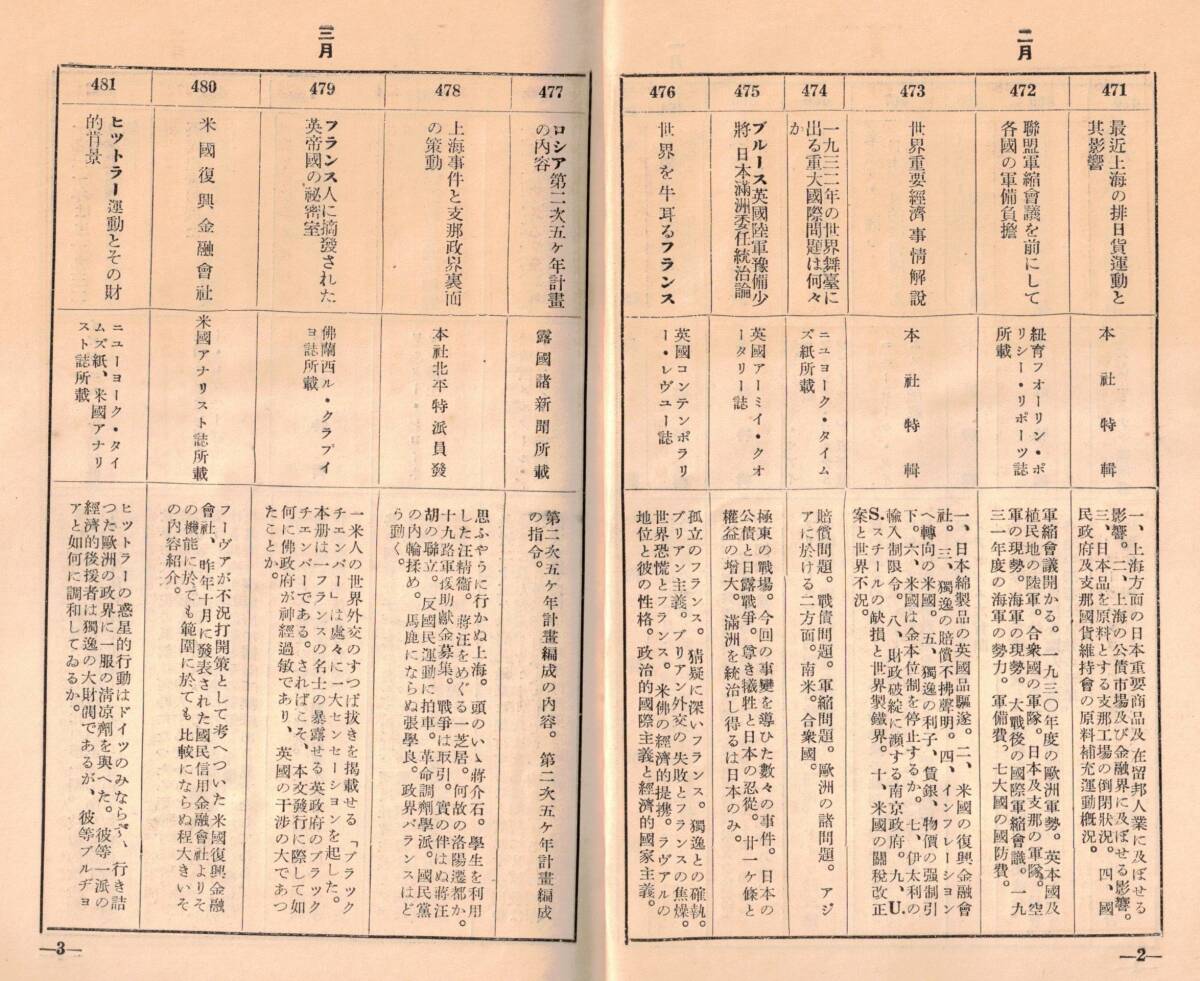 二月
471
最近上海の排日貨運動と
其影響
本社特輯
一、上海方面の日本重要商品及在留邦人業に及ぼせる
影響。二、上海の公債市場及び金融界に及ぼせる影響。
三、日本品を原料とする支那工場の倒閉狀況。四、國
民政府及支那國貨維持會の原料補充運動槪況。
472
聯盟軍縮會議を前にして
各國の軍備負擔
紐育フオーリン・ポ
リシー・リポーツ誌
所載
軍縮會議開かる。一九三〇年度の歐洲軍勢。英本國及
植民地の陸軍。合衆國の軍隊。日本及支那の軍隊。空
軍の現勢。海軍の現勢。大戰後の國際軍縮會議。一九
三一年度の海軍の勢力。軍備費。七大國の國防費。
473
世界重要經濟事情解說
本社特輯
一、日本綿製品の英國品驅逐。二、米國の復興金融會
社。三、獨逸の賠償不拂聲明。四、インフレーション
へ轉向の米國。五、獨逸の利子、賃銀、物價の强制引
下。六、米國は金本位制を停止するか。七、伊太利の
輸入制限令。八、財政破綻に瀕する南京政府。九、U.
S.スチールの缺損と世界製鐵界。十、米國の關稅改正
案と世界不況。
474
一九三二年の世界舞臺に
出る重大國際問題は何々
か
ニユヨーク・タイム
ズ紙所載
賠償問題。戰債問題。軍縮問題。歐洲の諸問題。アジ
アに於ける二方面。南米。合衆國。
475
ブルース英國陸軍豫備少
將 日本滿洲委任統治論
英國アーミイ・クオ
ータリー誌
極東の戰場。今回の事變を導ひた數々の事件。日本の
公債と日露戰爭。尊き犧牲と日本の忍從。廿一ケ條と
權益の增大。滿洲を統治し得るは日本のみ。
476
世界を牛耳るフランス
英國コンテンポラリ
ー・レヴユー誌
孤立のフランス。猜疑に深いフランス。獨逸との確執。
ブリアン主義。ブリアン外交の失敗とフランスの焦燥。
世界恐慌とフランス。米佛の經濟的提携。ラヴアルの
地位と彼の性格。政治的國際主義と經濟的國家主義。
—2—
三月
477
ロシア第二次五ケ年計畫
の內容
露國諸新聞所載
第二次五ケ年計畫編成の內容。第二次五ケ年計畫編成
の指令。
478
上海事件と支那政界裏面
の策動
本社北平特派員發
思ふやうに行かぬ上海。頭のいゝ蔣介石。學生を利用
した汪精衞。蔣汪をめぐる一芝居。何故の洛陽遷都か。
十九路軍援助獻金募集。戰爭は取引。實の伴はぬ蔣汪
胡の聯立。反國民運動に拍車。革命調劑學派。國民黨
の內輪揉め。馬鹿にならぬ張學良。政界バランスはど
う動く。
479
フランス人に摘發された
英帝國の祕密室
佛蘭西ル・クラプイ
ヨ誌所載
一米人の世界外交のすつぱ拔きを揭載せる「ブラック
チエンバー」は處々に一大センセーションを起した。
本册は一フランスの名士の暴露せる英政府のブラック
チエンバーである。さればこそ、本文發行に際して如
何に佛政府が神經過敏であり、英國の干涉の大であつ
たことか。
480
米國復興金融會社
米國アナリスト誌所載
フーヴアが不況打開策として考へついた米國復興金融
會社、昨年十月に發表された國民信用金融會社よりそ
の機能に於ても範圍に於ても比較にならぬ程大きいそ
の內容紹介。
481
ヒツトラー運動とその財
的背景
ニューヨーク・タイ
ムズ紙、米國アナリ
スト誌所載
ヒツトラーの惑星的行動はドイツのみならず、行き詰
つた歐洲の政界に一服の淸涼劑を與へた。彼等一派の
經濟的後援者は獨逸の大財閥であるが、彼等ブルヂヨ
アと如何に調和してゐるか。
—3—